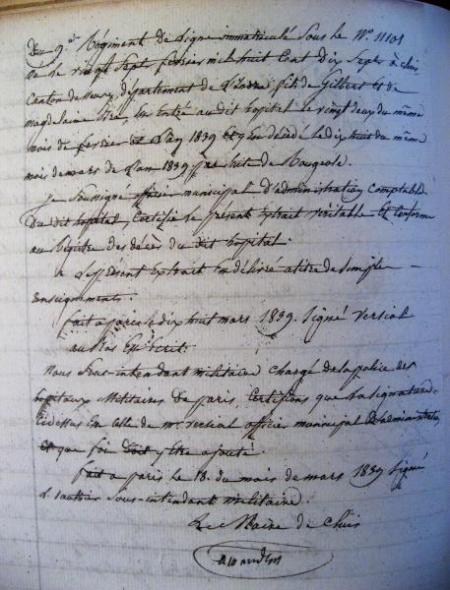 Du 9e Régiment de Ligne immatriculé Sous le No 11101
né le vingt Sept fevrier mil huit Cent dix Sept à
Canton de département de L'indre fils de Gilbert et de
magdelaine Entré au dit hopital le vingt deux du même
mois de fevrier de L'an 1839 et y Est décédé le dix huit du même
mois de mars de L'an 1839 par Suite de Rougeole.
je Soussigné officier municipal D'administration Comptable
Du dit hopital, Certifie le présent Extrait véritable Et Conforme
au Régistre des décès du dit hopital.
Le présent Extrait En délivré a titre de Simple
Enseignements.
fait a paris le dix huit mars 1839. Signé versial
au Bas Est Ecrit.
Nous Sous-intendant militaire chargé de la police des
hopitaux Militaires De paris, Certifions que la Signature
Cidessus Est Celle de mr. versial officier municipal D'administration
Et que foi Doit y Etre ajouté.
fait a paris le 18. du mois de mars 1839 Signé
Sous-intendant militaire.
Le Maire de